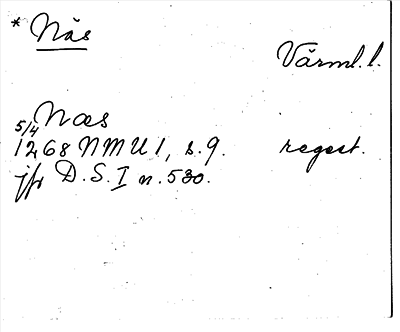 * Näs
Värml. l.
Næs
5/4 1268 NMU 1, s. 9. regest.
jfr D. S. I n. 530.